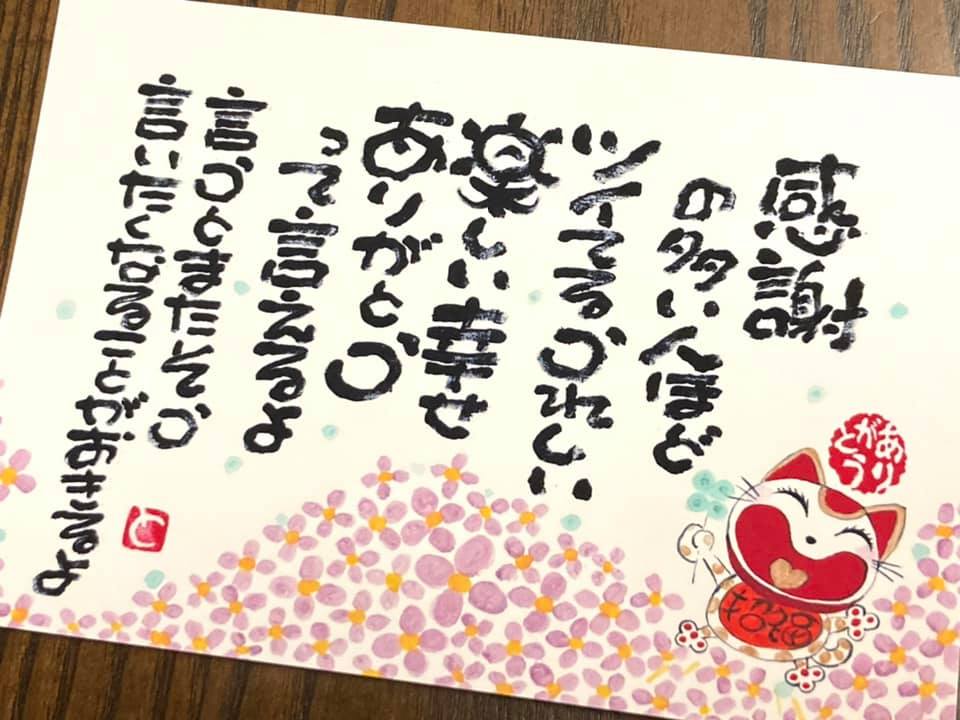 感謝
の多い人ほど
ツイてるうれしい
楽しい幸せ
ありがとう
って言えるよ
言うとまたそう
言いたくなることがおきるよ
ありがとう
招福
と